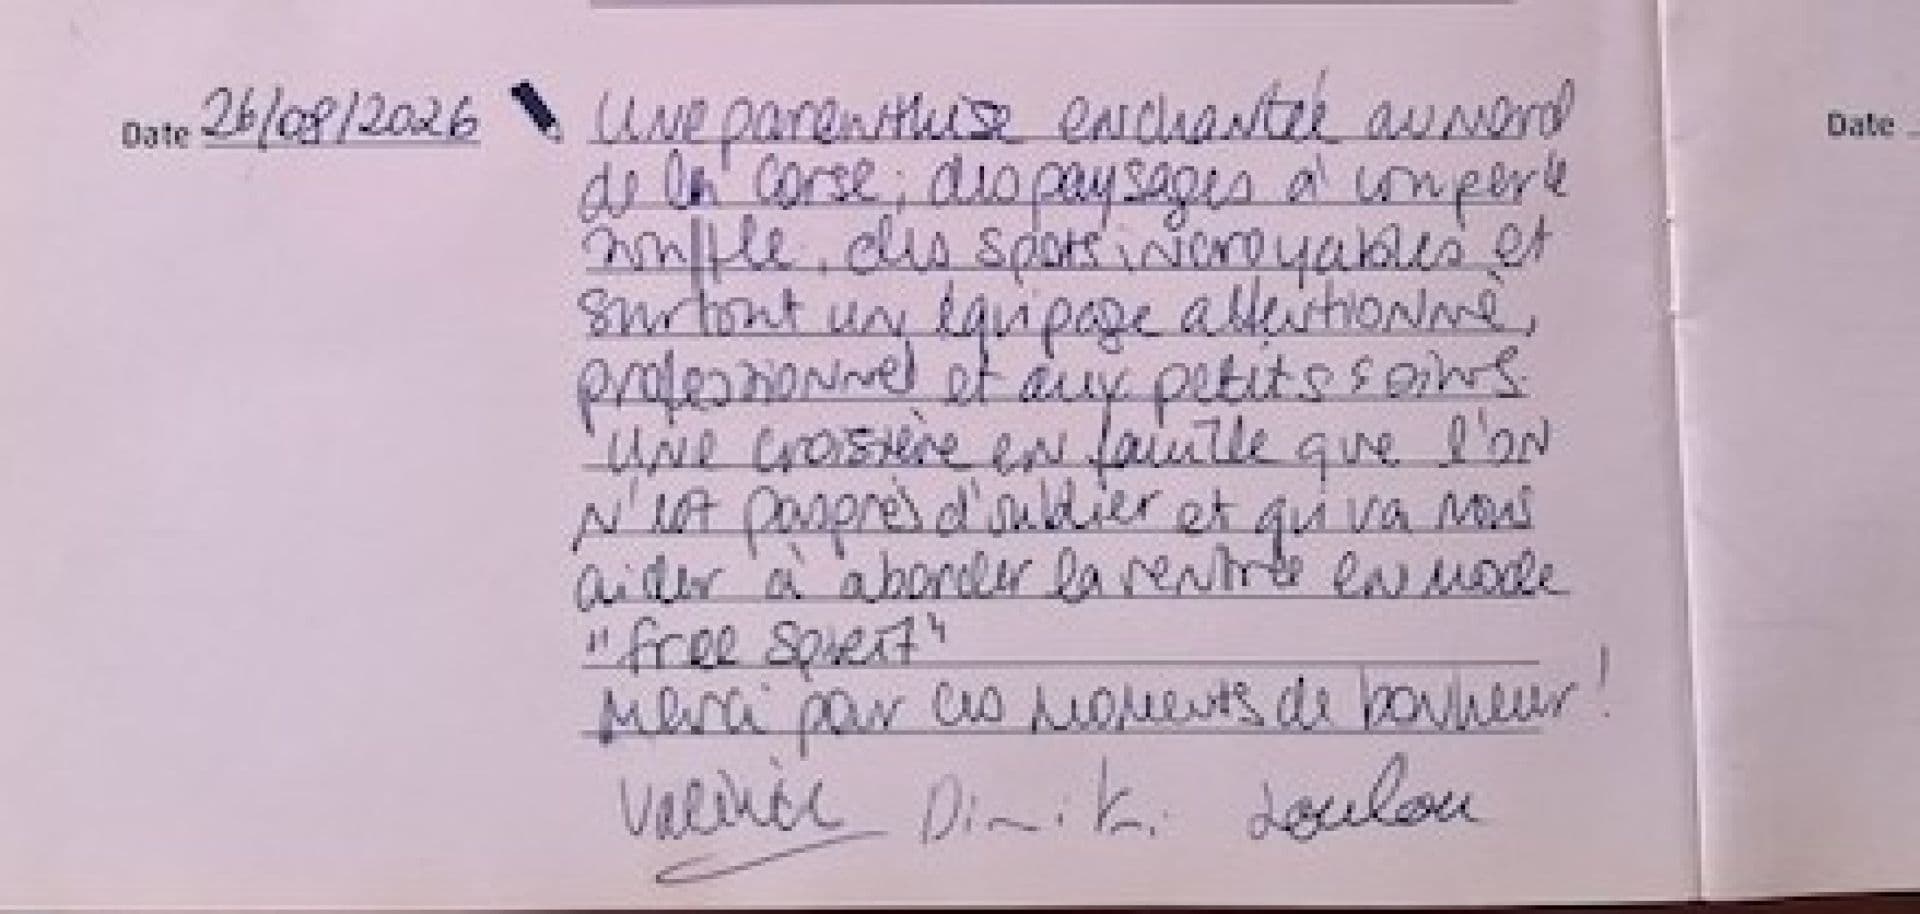 Date 26/08/2026
Une parenthèse enchantée au nord
de la Corse, des paysages à couper le
souffle, des spots incroyables et
surtout un équipage attentionné,
professionnel et aux petits soins.
Une croisière en famille que l'on
n'est pas près d'oublier et qui va nous
aider à aborder la rentrée en mode
"free spirit"
Merci pour ces moments de bonheur !
Dimitri Loulou
Date